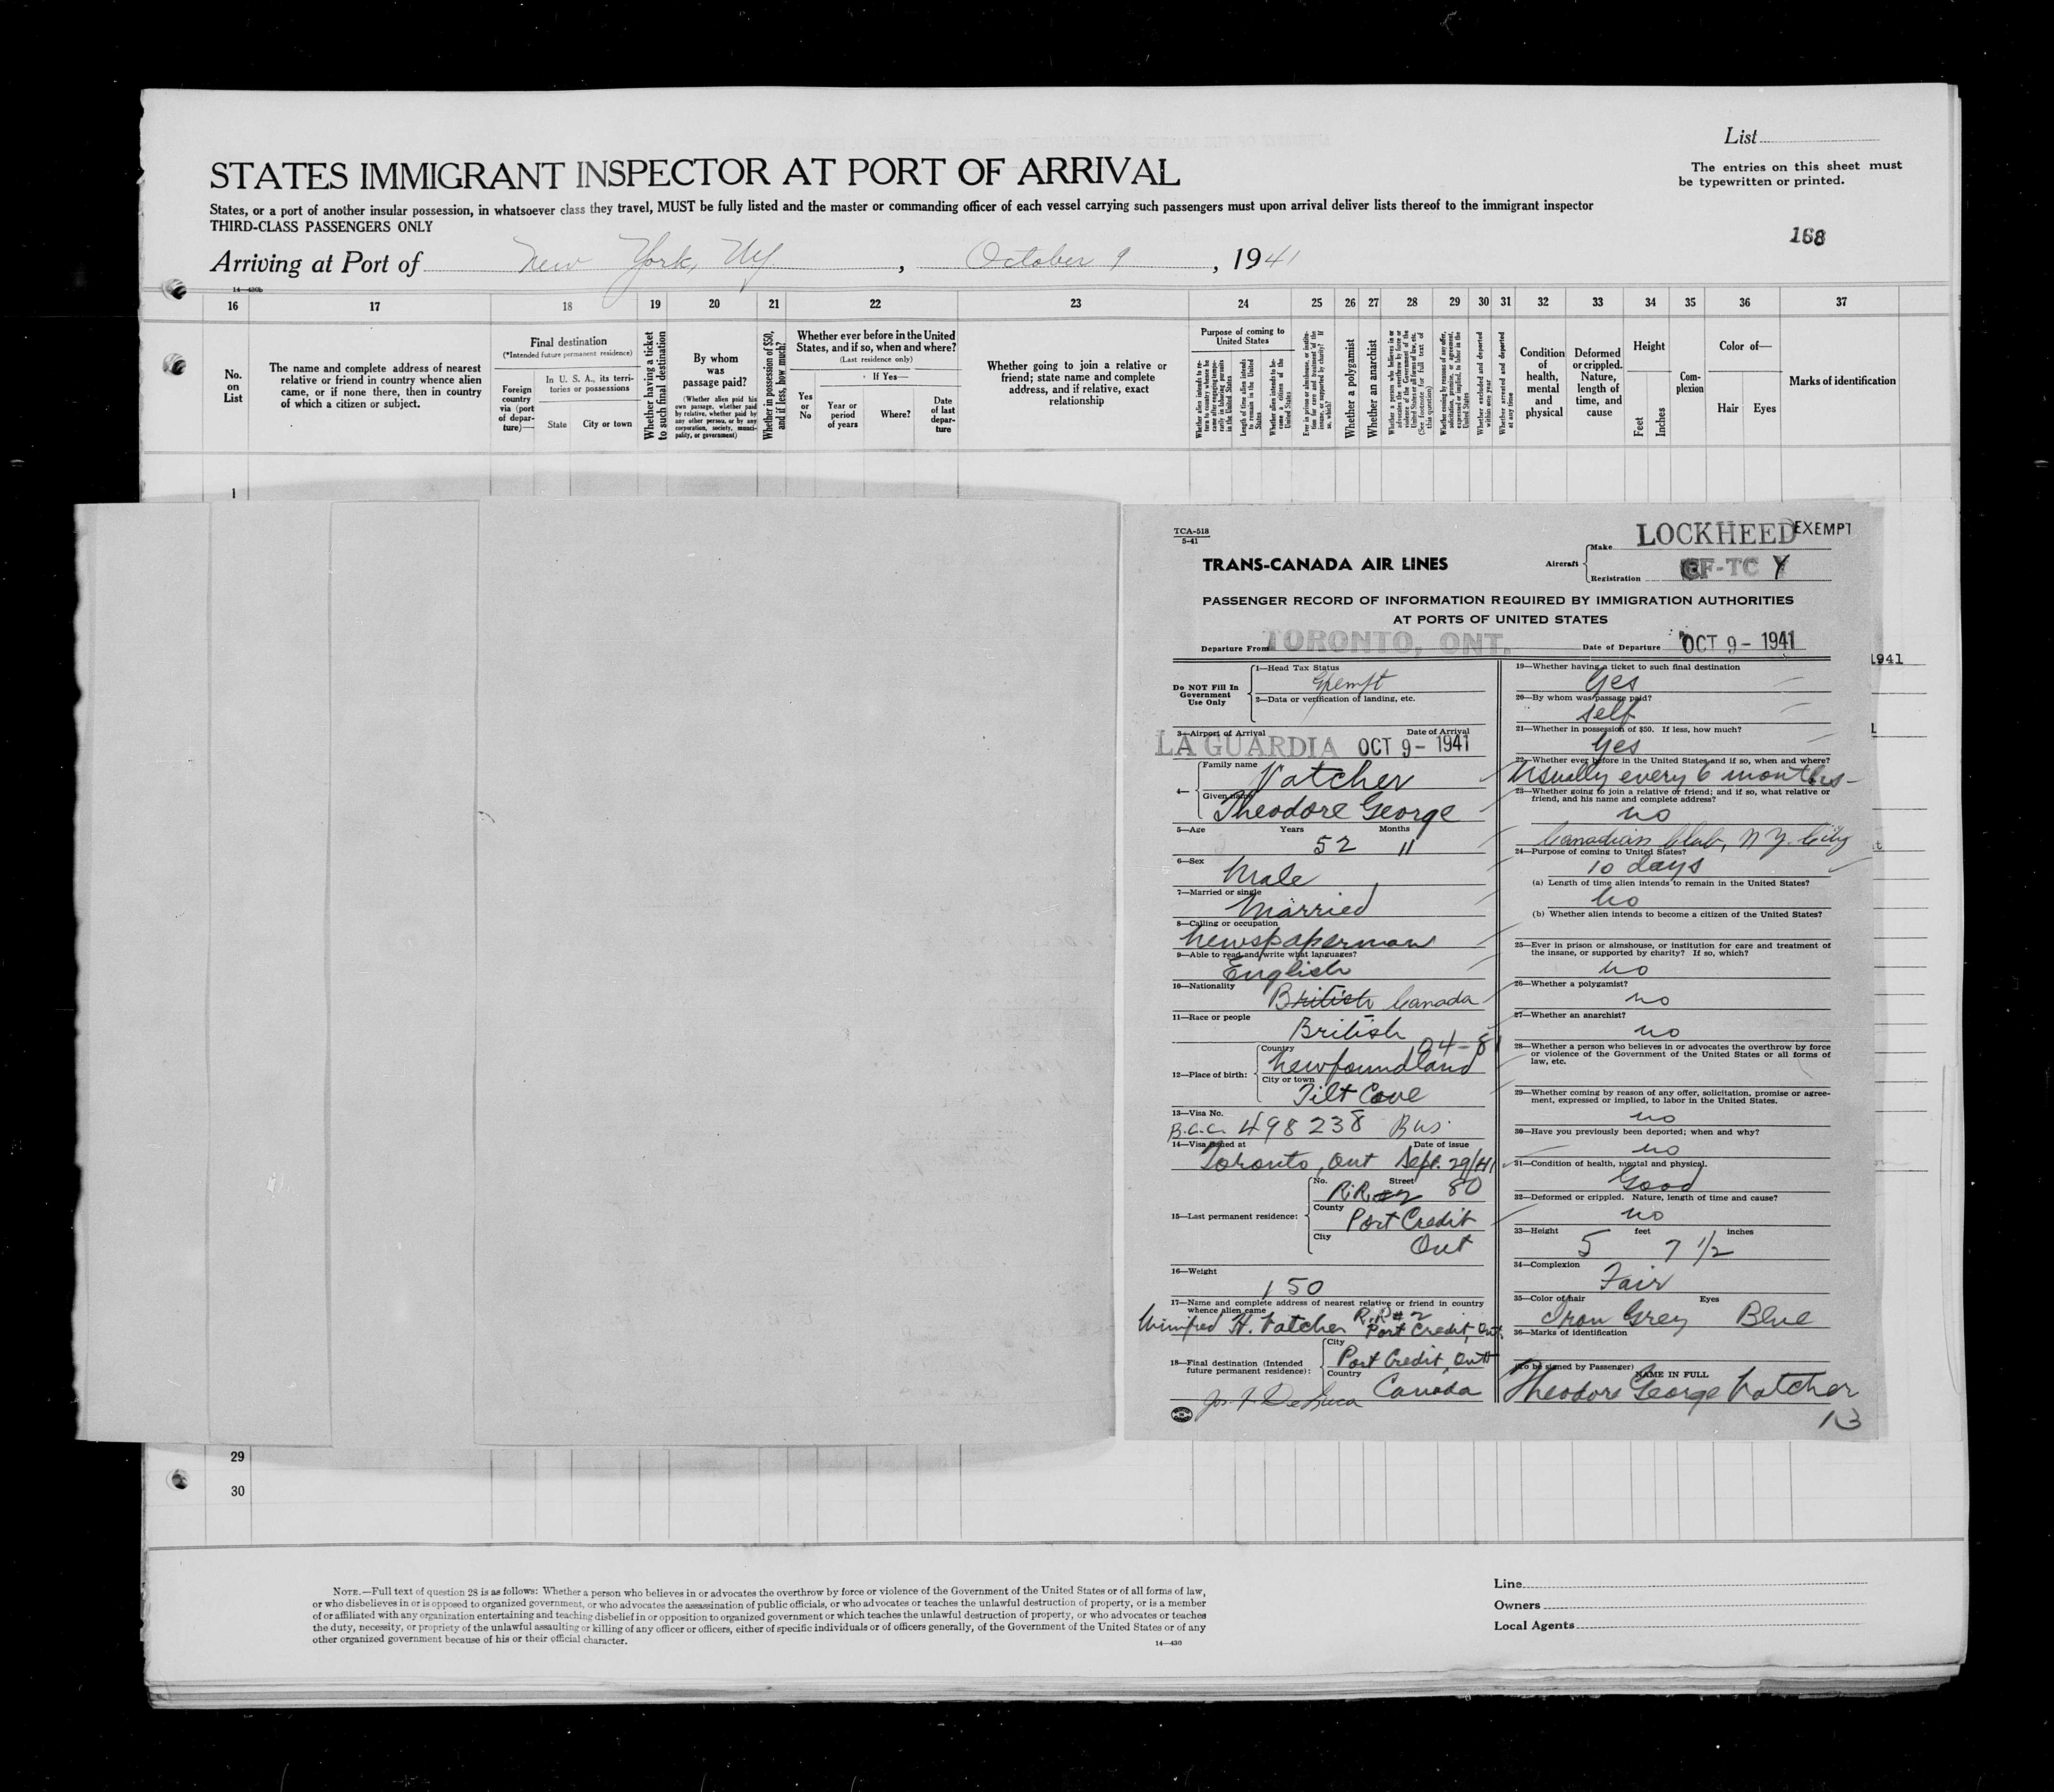 List
The entries on this sheet must
be typewritten or printed.
STATES IMMIGRANT INSPECTOR AT PORT OF ARRIVAL
States, or a port of another insular possession, in whatsoever class they travel, MUST be fully listed and the master or commanding officer of each vessel carrying such passengers must upon arrival deliver lists thereof to the immigrant inspector
THIRD-CLASS PASSENGERS ONLY
168
Arriving at Port of New York, NY, October 9, 1941
14—430b
16 17 18 19 20 21 22 23 24 25 26 27 28 29 30 31 32 33 34 35 36 37
No. on List
The name and complete address of nearest relative or friend in country whence alien came, or if none there, then in country of which a citizen or subject.
Final destination
(*Intended future permanent residence)
Foreign country via (port of departure)—
In U. S. A., its territories or possessions
State
City or town
Whether having a ticket to such final destination
By whom was passage paid?
(Whether alien paid his own passage, whether paid by relative, whether paid by any other person, or by any corporation, society, municipality, or government)
Whether in possession of $50, and if less, how much?
Whether ever before in the United States, and if so, when and where?
(Last residence only)
Yes or No
If Yes—
Year or period of years
Where?
Date of last departure
Whether going to join a relative or friend; state name and complete address, and if relative, exact relationship
Purpose of coming to United States
Whether alien intends to return to country whence he came after engaging temporarily in laboring pursuits in the United States
Length of time alien intends to remain in the United States
Whether alien intends to become a citizen of the United States
Ever in prison or almshouse, or institution for care and treatment of the insane, or supported by charity? If so, which?
Whether a polygamist
Whether an anarchist
Whether a person who believes in or advocates the overthrow by force or violence of the Government of the United States or all forms of law, etc. (See footnote for full text of this question)
Whether coming by reasons of any offer, solicitation, promise, or agreement, expressed or implied, to labor in the United States
Whether excluded and deported within one year
Whether arrested and deported at any time
Condition of health, mental and physical
Deformed or crippled. Nature, length of time, and cause
Height
Feet
Inches
Complexion
Color of—
Hair
Eyes
Marks of identification
1
TCA-518
5-41
TRANS-CANADA AIR LINES
Aircraft
Make LOCKHEED
EXEMPT
Registration CF-TC Y
PASSENGER RECORD OF INFORMATION REQUIRED BY IMMIGRATION AUTHORITIES
AT PORTS OF UNITED STATES
Departure From TORONTO, ONT.
Date of Departure OCT 9 - 1941
Do NOT Fill In Government Use Only
1—Head Tax Status
Exempt
2—Data or verification of landing, etc.
3—Airport of Arrival Date of Arrival
LA GUARDIA OCT 9 - 1941
4—
Family name
Vatcher
Given name
Theodore George
5—Age Years Months
52 11
6—Sex
Male
7—Married or single
Married
8—Calling or occupation
Newspaperman
9—Able to read and write what languages?
English
10—Nationality
British Canada
11—Race or people
British
04-81
12—Place of birth:
Country
Newfoundland
City or town
Tilt Cove
13—Visa No.
B.C.C. 498238 Bus.
14—Visa issued at Date of issue
Toronto, Ont Sept. 29/41
15—Last permanent residence:
No. Street
R.R.#2 80
County
Port Credit
City
Ont
16—Weight
150
17—Name and complete address of nearest relative or friend in country
whence alien came
Winnifred H. Vatcher R.R#2
Port Credit, Ont.
18—Final destination (Intended
future permanent residence):
City
Port Credit, Ont
Country
Canada
Jos. F. DeLuca
19—Whether having a ticket to such final destination
Yes
20—By whom was passage paid?
Self
21—Whether in possession of $50. If less, how much?
Yes
22—Whether ever before in the United States and if so, when and where?
Usually every 6 months
23—Whether going to join a relative or friend; and if so, what relative or
friend, and his name and complete address?
no
Canadian Club, N.Y. City
24—Purpose of coming to United States?
10 days
(a) Length of time alien intends to remain in the United States?
No
(b) Whether alien intends to become a citizen of the United States?
25—Ever in prison or almshouse, or institution for care and treatment of
the insane, or supported by charity? If so, which?
no
26—Whether a polygamist?
no
27—Whether an anarchist?
no
28—Whether a person who believes in or advocates the overthrow by force
or violence of the Government of the United States or all forms of
law, etc.
29—Whether coming by reason of any offer, solicitation, promise or agree-
ment, expressed or implied, to labor in the United States.
no
30—Have you previously been deported; when and why?
no
31—Condition of health, mental and physical.
Good
32—Deformed or crippled. Nature, length of time and cause?
no
33—Height feet inches
5 7 1/2
34—Complexion
Fair
35—Color of hair Eyes
Iron Grey Blue
36—Marks of identification
(To be signed by Passenger) NAME IN FULL
Theodore George Vatcher
13
1941
29
30
NOTE.—Full text of question 28 is as follows: Whether a person who believes in or advocates the overthrow by force or violence of the Government of the United States or of all forms of law,
or who disbelieves in or is opposed to organized government, or who advocates the assassination of public officials, or who advocates or teaches the unlawful destruction of property, or is a member
of or affiliated with any organization entertaining and teaching disbelief in or opposition to organized government or which teaches the unlawful destruction of property, or who advocates or teaches
the duty, necessity, or propriety of the unlawful assaulting or killing of any officer or officers, either of specific individuals or of officers generally, of the Government of the United States or of any
other organized government because of his or their official character.
14—430
Line
Owners
Local Agents